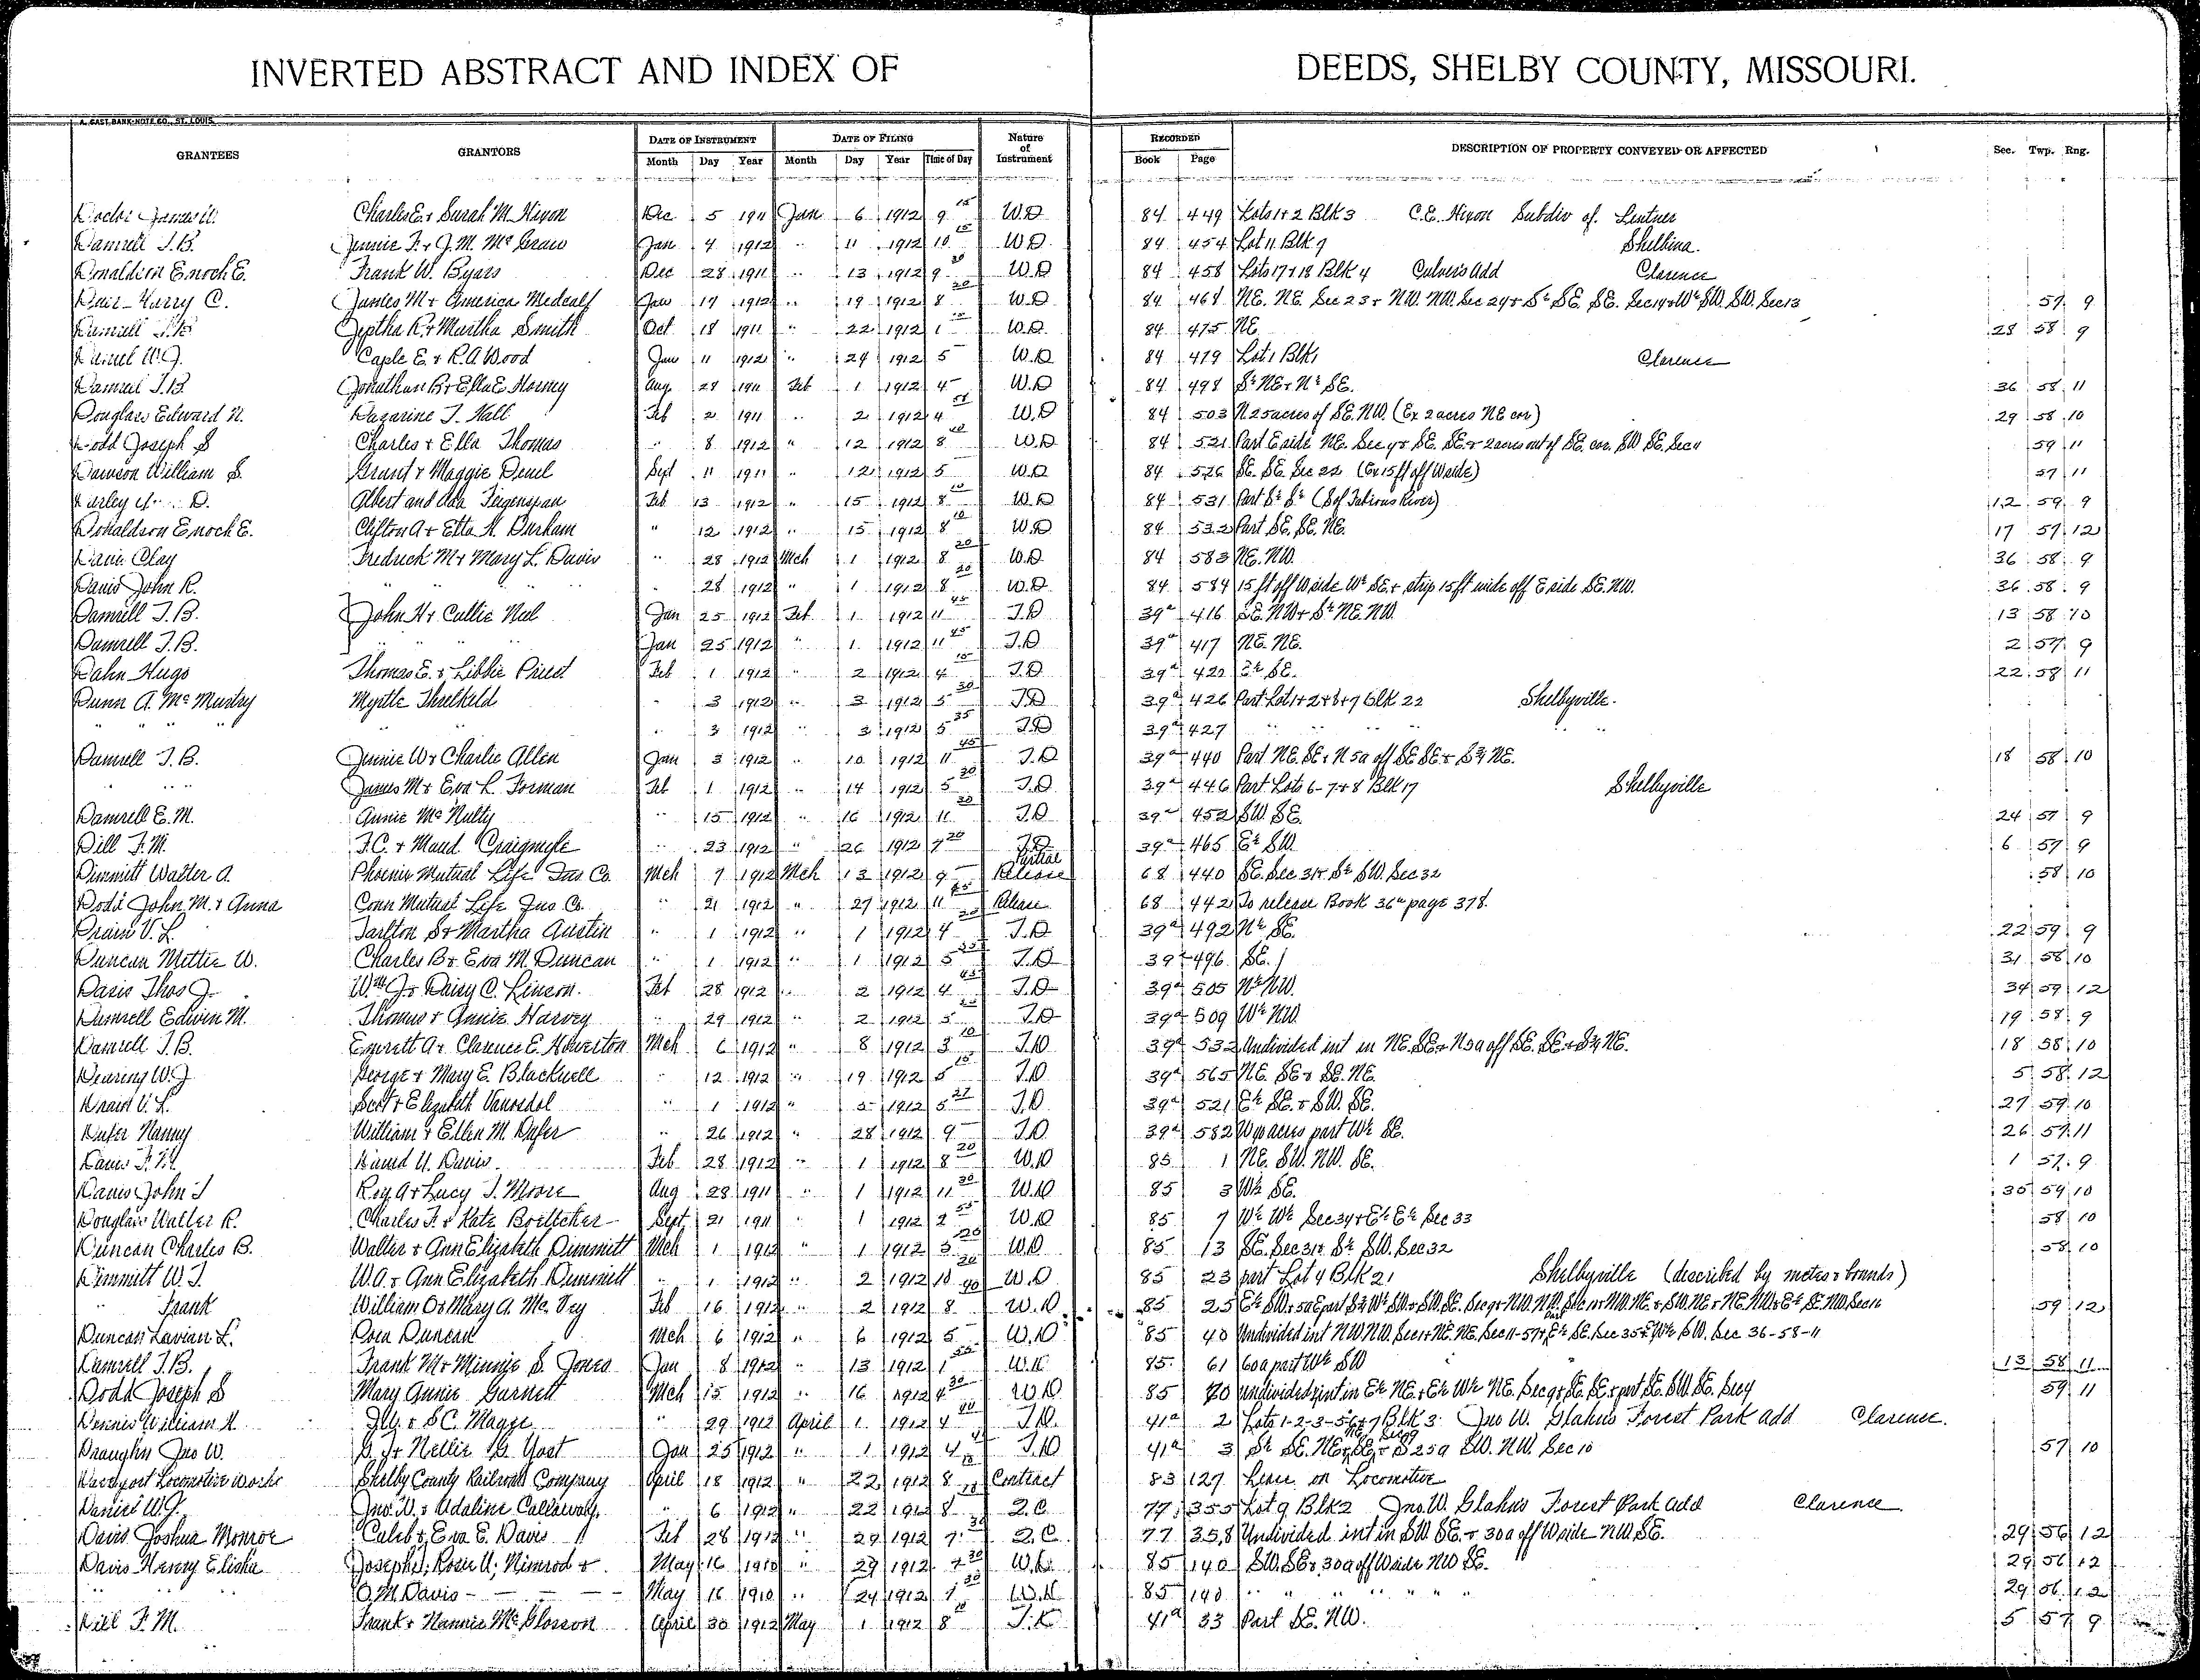 INVERTED ABSTRACT AND INDEX OF DEEDS, SHELBY COUNTY, MISSOURI.
A. GAST BANK-NOTE CO., ST. LOUIS.
GRANTEES GRANTORS DATE OF INSTRUMENT DATE OF FILING Nature of Instrument RECORDED DESCRIPTION OF PROPERTY CONVEYED OR AFFECTED Sec. Twp. Rng.
Month Day Year Month Day Year Time of Day Book Page
Charles E. & Sarah M. Hixon Dec 5 1911 Jan 6 1912 9 15 W.D 84 449 Lots 1 & 2 Blk 3 C.E. Hixon Subdiv of Lentner
Damrell J.B. Jennie F. & J.M. McGraw Jan 4 1912 " 11 1912 10 15 W.D 84 454 Lot 11 Blk 7 Shelbina.
Donaldson Enoch E. Frank W. Byars Dec 28 1911 " 13 1912 9 20 W.D 84 458 Lots 17 & 18 Blk 4 Culver's Add Clarence
Harry C. James M & America Medcalf Jan 17 1912 " 19 1912 8 20 W.D 84 468 NE. NE. Sec 23 & NW. NW. Sec 24 & S½ SE. SE. Sec 14 & W½ SW. SW. Sec 13 57 9
Damrell J.B. Jeptha R. & Martha Smith Oct 18 1911 " 22 1912 1 W.D. 84 475 NE 28 58 9
Daniel W.J. Caple E. & R.A. Wood Jan 11 1912 " 24 1912 5 W.D 84 479 Lot 1 Blk 1 Clarence
Damrell J.B. Jonathan B & Ella E. Horney Aug 28 1911 Feb 1 1912 4 W.D 84 498 S½ NE & N½ SE. 36 58 11
Douglass Edward N. Nazarine T. Hall Feb 2 1911 " 2 1912 4 W.D 84 503 N 25 acres of SE. NW. (Ex 2 acres NE cor) 29 58 10
Dodd Joseph S Charles & Ella Thomas " 8 1912 " 12 1912 8 W.D 84 521 Part E side NE. Sec 9 & SE. SE. & 2 acres out of SE. cor. SW SE. Sec 4 59 11
Dawson William S. Grant & Maggie Deuel Sept 11 1911 " 12 1912 5 W.D 84 526 SE. SE. Sec 22 (Ex 15 ft off W side) 57 11
D. Albert and Ada Feigenspan Feb 13 1912 " 15 1912 8 10 W.D 84 531 Part S½ S½ (S of Fabius River) 12 59 9
Donaldson Enoch E. Clifton A & Etta H. Durham " 12 1912 " 15 1912 8 10 W.D 84 532 Part SE. SE. NE. 17 57 12
Davis Clay Fredrick M & Mary L. Davis " 28 1912 Mch 1 1912 8 20 W.D 84 583 NE. NW. 36 58 9
Davis John R. " " 28 1912 " 1 1912 8 20 W.D 84 584 15 ft off W side W½ SE. & strip 15 ft wide off E side SE. NW. 36 58 9
Damrell J.B. John H & Callie Neel Jan 25 1912 Feb 1 1912 11 45 T.D 39a 416 SE. NW & S½ NE. NW. 13 58 10
Damrell J.B. " " Jan 25 1912 " 1 1912 11 45 T.D 39a 417 NE. NE. 2 57 9
Dahn Hugo Thomas E. & Libbie Priest Feb 1 1912 " 2 1912 4 15 T.D 39a 422 E½ SE. 22 58 11
Dunn A. McMurtry Myrtle Threlkeld " 3 1912 " 3 1912 5 30 T.D 39a 426 Part Lot 1 & 2 & 6 & 7 Blk 22 Shelbyville.
" " " " 3 1912 " 3 1912 5 35 T.D 39a 427 " " "
Damrell J.B. Jennie W & Charlie Allen Jan 3 1912 " 10 1912 11 45 T.D 39a 440 Part NE. SE & N 5a off SE SE & S¾ NE. 18 58 10
" " James M & Eva L. Forman Feb 1 1912 " 14 1912 5 30 T.D 39a 446 Part Lots 6-7 & 8 Blk 17 Shelbyville
Damrell E.M. Annie McNulty " 15 1912 " 16 1912 11 20 T.D 39a 452 SW. SE. 24 57 9
Dill F.M. F.C. & Maud Craigmyle " 23 1912 " 26 1912 7 20 T.D 39a 465 E½ SW. 6 57 9
Dimmitt Walter A. Phoenix Mutual Life Ins Co. Mch 7 1912 Mch 13 1912 9 Partial Release 68 440 SE. Sec 31 & S½ SW. Sec 32 58 10
Dodd John M. & Anna Conn Mutual Life Ins Co. " 21 1912 " 27 1912 11 Release 68 442 To release Book 36a page 378.
Drain V.L. Tarlton S & Martha Austin " 1 1912 " 1 1912 4 20 T.D 39a 492 N½ SE. 22 59 9
Duncan Mettie W. Charles B & Eva M. Duncan " 1 1912 " 1 1912 5 T.D 39a 496 SE. 31 58 10
Davis Thos J. Wm J & Daisy C. Linson. Feb 28 1912 " 2 1912 4 45 T.D 39a 505 N½ NW. 34 59 12
Damrell Edwin M. Thomas & Annie Harvey " 29 1912 " 2 1912 5 T.D 39a 509 W½ NW. 19 58 9
Damrell J.B. Everett A & Clarence E. Howerton Mch 6 1912 " 8 1912 3 10 T.D 39a 532 Undivided int in NE. SE & N 5a off SE. SE. & S¾ NE. 18 58 10
Dearing W.J. George & Mary E. Blackwell " 12 1912 " 19 1912 5 15 T.D 39a 565 NE. SE & SE. NE. 5 58 12
Drain V.L. Scott & Elizabeth Vanosdol " 1 1912 " 5 1912 5 27 T.D 39a 521 E½ SE. & SW. SE. 27 59 10
Dufer Nanny William & Ellen M. Dufer " 26 1912 " 28 1912 9 T.D 39a 582 W 40 acres part W½ SE. 26 57 11
Davis F.M. David U. Davis Feb 28 1912 " 1 1912 8 20 W.D 85 1 NE. SW. NW. SE. 1 57 9
Davis John J Roy A & Lucy J. Moore Aug 28 1911 " 1 1912 11 20 W.D 85 3 W½ SE. 35 59 10
Douglass Walter R. Charles F. & Kate Boettcher Sept 21 1911 " 1 1912 2 55 W.D 85 7 W½ W½ Sec 34 & E½ E½ Sec 33 58 10
Duncan Charles B. Walter & Ann Elizabeth Dimmitt Mch 1 1912 " 1 1912 5 20 W.D 85 13 SE. Sec 31 & S½ SW. Sec 32 58 10
Dimmitt W.J. W.A. & Ann Elizabeth Dimmitt " 1 1912 " 2 1912 10 20 W.D 85 23 part Lot 4 Blk 21 Shelbyville (described by metes & bounds)
" Frank William O & Mary A. McVey Feb 16 1912 " 2 1912 8 40 W.D 85 25 59 12
Duncan Lavian L. Dora Duncan Mch 6 1912 " 6 1912 5 W.D 85 40 Undivided int NW NW. Sec 1 & NE. NE. Sec 11-57 & Part E½ SE. Sec 35 & W½ SW. Sec 36-58-11
Damrell J.B. Frank M & Minnie S. Jones Jan 8 1912 " 13 1912 1 W.D 85 61 60a part W½ SW 13 58 11
Dodd Joseph S Mary Annie Garnett Mch 15 1912 " 16 1912 4 30 W.D 85 70 Undivided int in E½ NE. & E½ W½ NE. Sec 9 & SE. SE. & part SE. SW. SE. Sec 4 59 11
Dennis William H. & S.C. Magge " 29 1912 April 1 1912 4 40 T.D. 41a 2 Lots 1-2-3-5-6 & 7 Blk 3 Jno W. Glahns Forest Park Add Clarence.
Draughn Jno W. & Nellie G. Yost Jan 25 1912 " 1 1912 4 T.D 41a 3 S½ SE. NE. & S 25a SW. NW. Sec 10 57 10
Davenport Locomotive Works Shelby County Railroad Company April 18 1912 " 22 1912 8 Contract 83 127 Lease on Locomotive
Daniel W.J. Jno. W. & Adaline Callaway. " 6 1912 " 22 1912 8 Q.C. 77 355 Lot 9 Blk 2 Jno. W. Glahns Forest Park Add Clarence
Davis Joshua Monroe Caleb & Eva E. Davis Feb 28 1912 " 29 1912 7 30 Q.C. 77 358 Undivided int in SW SE. & 30a off W side NW. SE. 29 56 12
Davis Henry Elisha Joseph S; Rosie U; Nimrod & May 16 1910 " 29 1912 7 30 W.D. 85 140 SW. SE & 30a off W side NW SE. 29 56 12
" " O.M. Davis - - - - May 16 1910 " 24 1912 7 30 W.D. 85 140 " " " " " " 29 56 12
Dill F.M. Frank & Nannie McGlosson April 30 1912 May 1 1912 8 10 T.D. 41a 33 Part SE. NW. 5 57 9